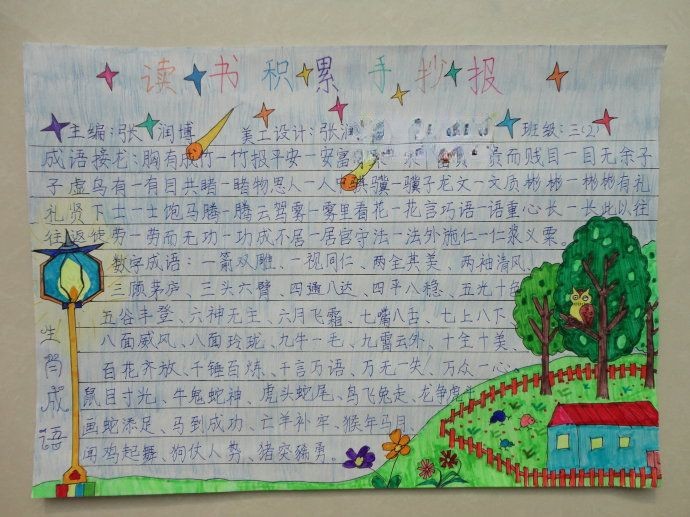 读书积累手抄报
主编：张润博 美工设计：张润 班级：三(2)
成语接龙：胸有成竹一竹报平安一安富 贵而贱目一目无余子
子虚乌有一有目共睹一睹物思人一人中骐骥一骥子龙文一文质彬彬一彬彬有礼
礼贤下士一士饱马腾一腾云驾雾一雾里看花一花言巧语一语重心长一长此以往
往返徒劳一劳而无功一功成不居一居官守法一法外施仁一仁浆义粟。
数字成语：一箭双雕、一视同仁、两全其美、两袖清风、
三顾茅庐、三头六臂、四通八达、四平八稳、五光十色
五谷丰登、六神无主、六月飞霜、七嘴八舌、七上八下、
八面威风、八面玲珑、九牛一毛、九霄云外、十全十美、
百花齐放、千锤百炼、千言万语、万无一失、万众一心、
生肖成语
鼠目寸光、牛鬼蛇神、虎头蛇尾、鸟飞兔走、龙争虎
画蛇添足、马到成功、亡羊补牢、猴年马月
闻鸡起舞、狗仗人势、猪突豨勇。